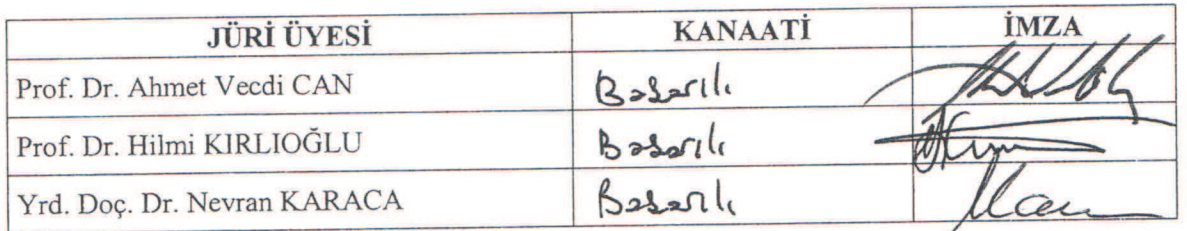 JÜRİ ÜYESİ KANAATİ İMZA
Prof. Dr. Ahmet Vecdi CAN Başarılı
Prof. Dr. Hilmi KIRLIOĞLU Başarılı
Yrd. Doç. Dr. Nevran KARACA Başarılı